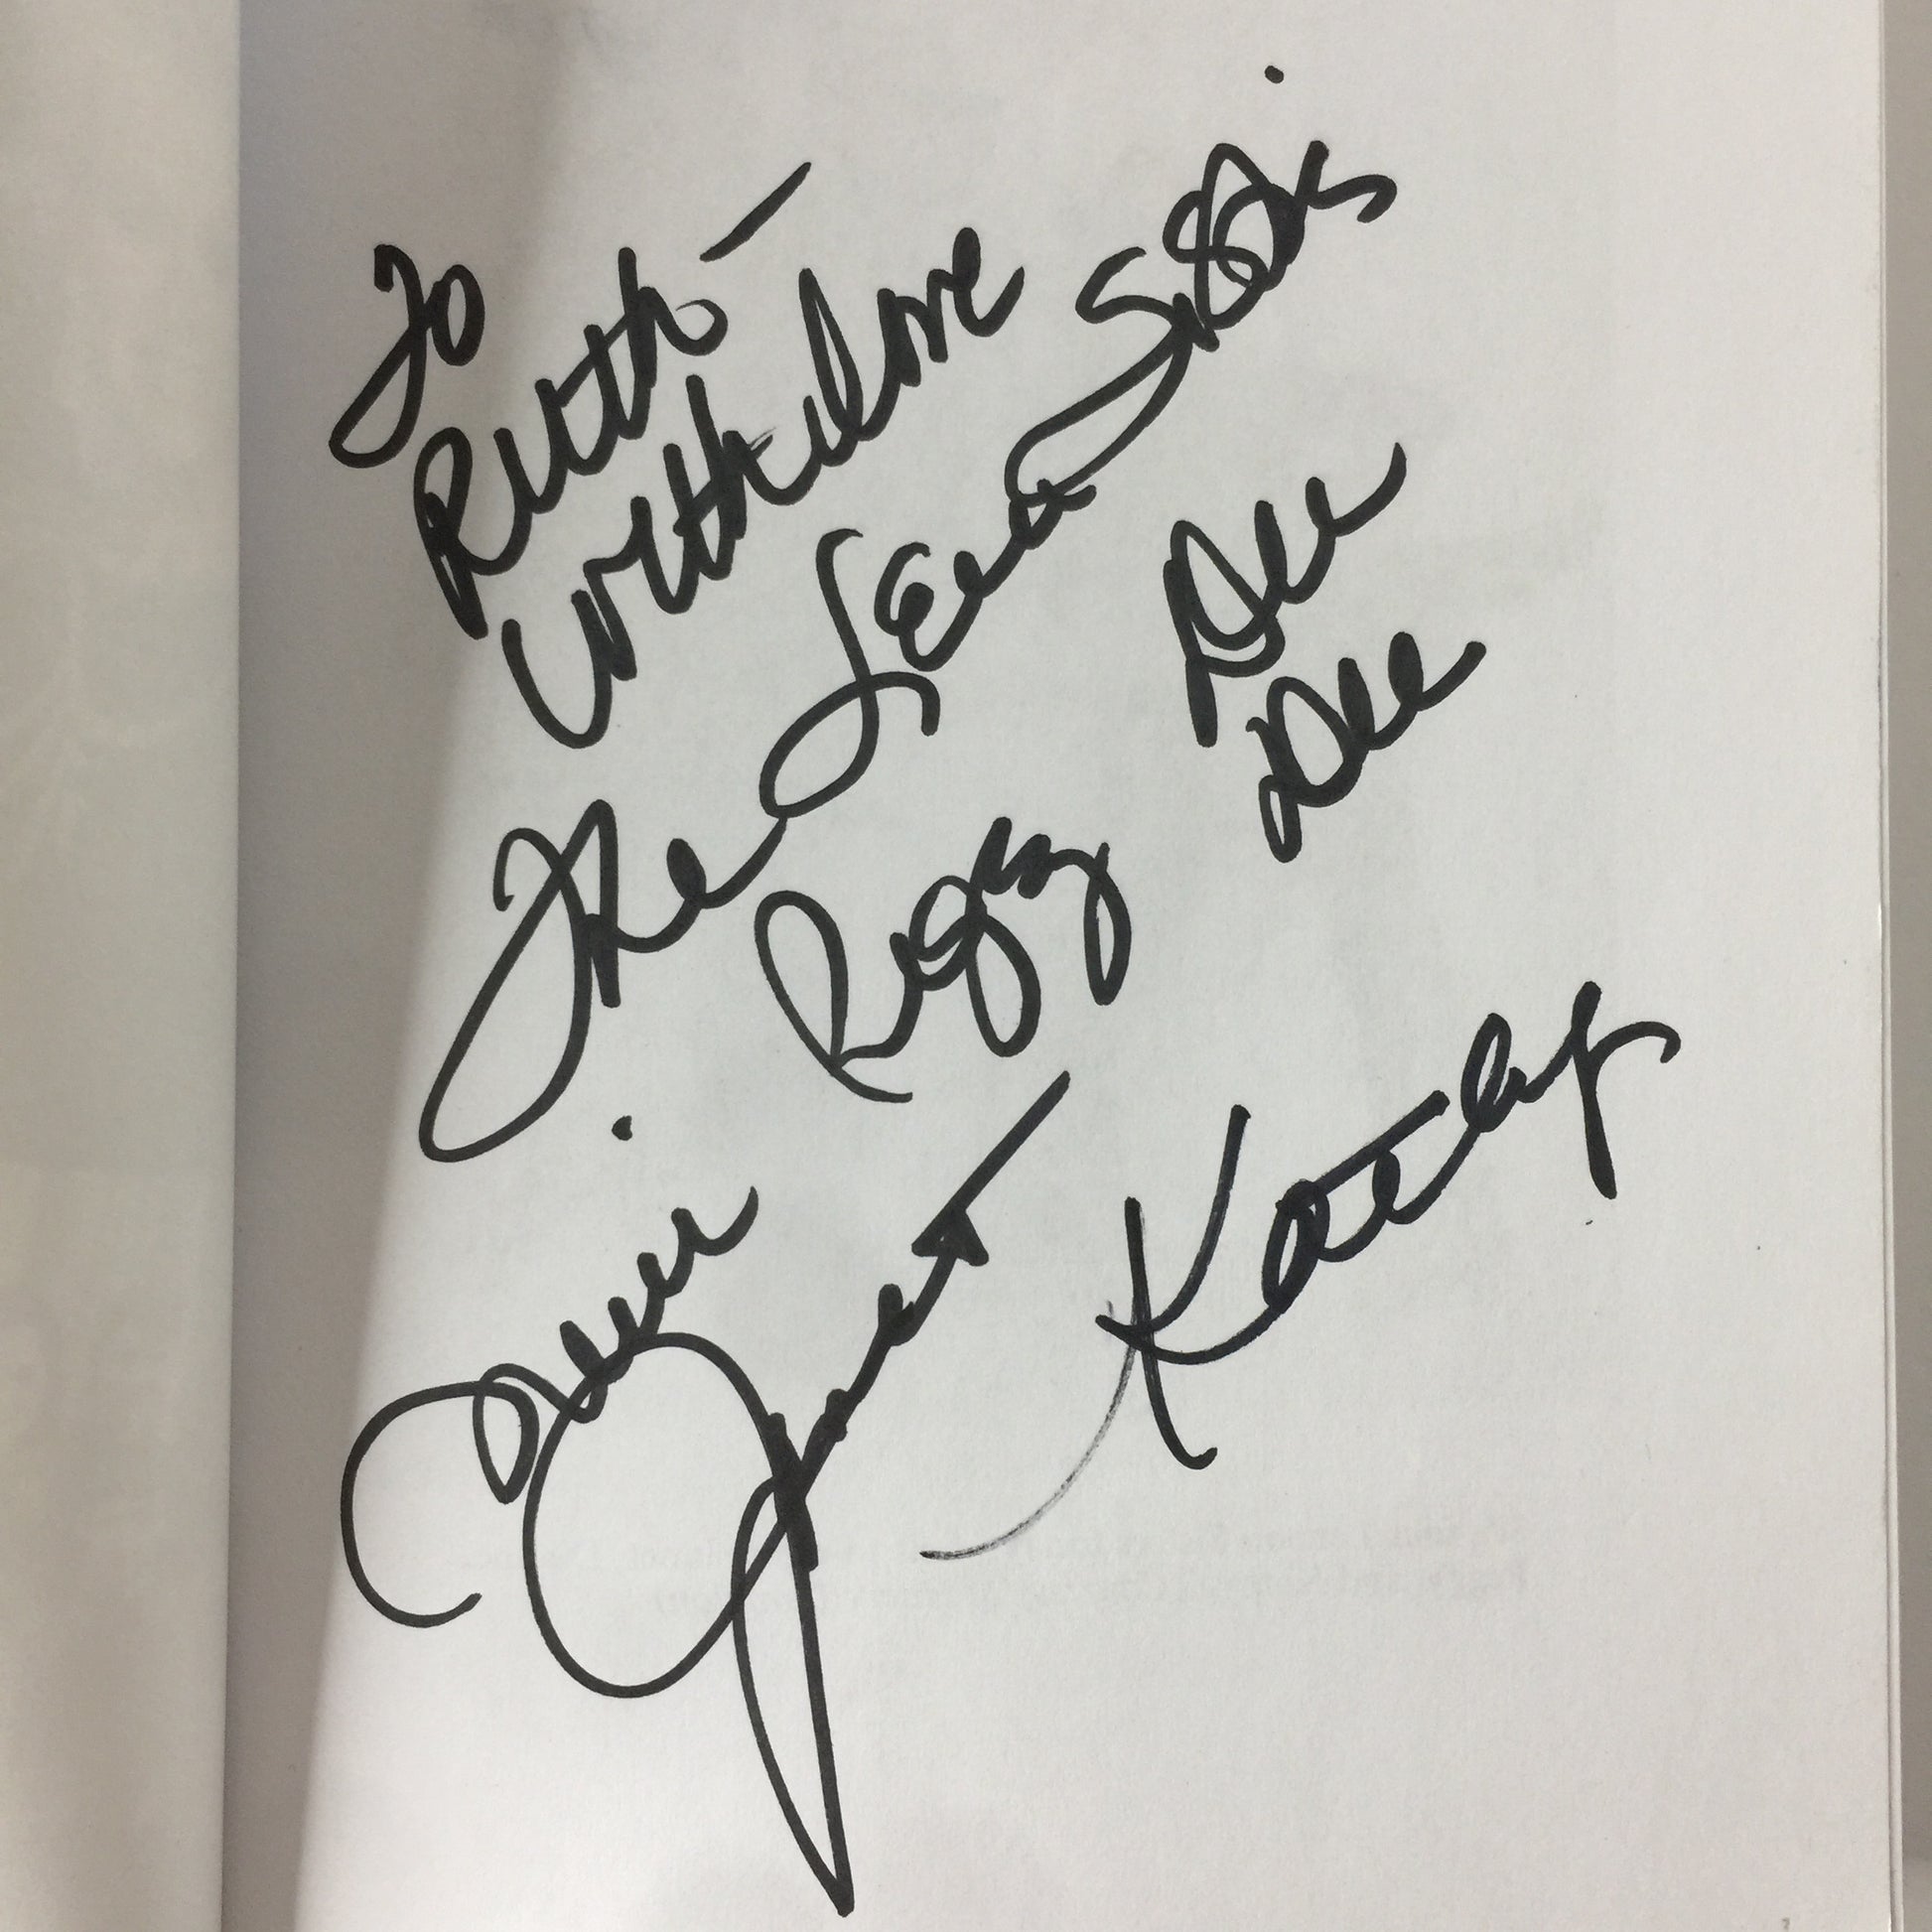 To
Ruth -
With love
The Lennon Sisters
Dee
Dee
Peggy
Kathy
Janet